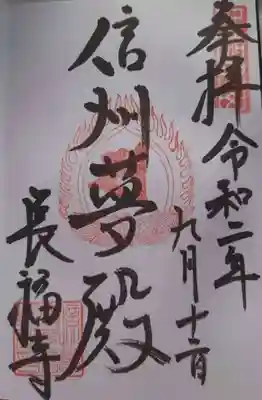 奉拝
令和二年
九月十二日
信州夢殿
長福寺